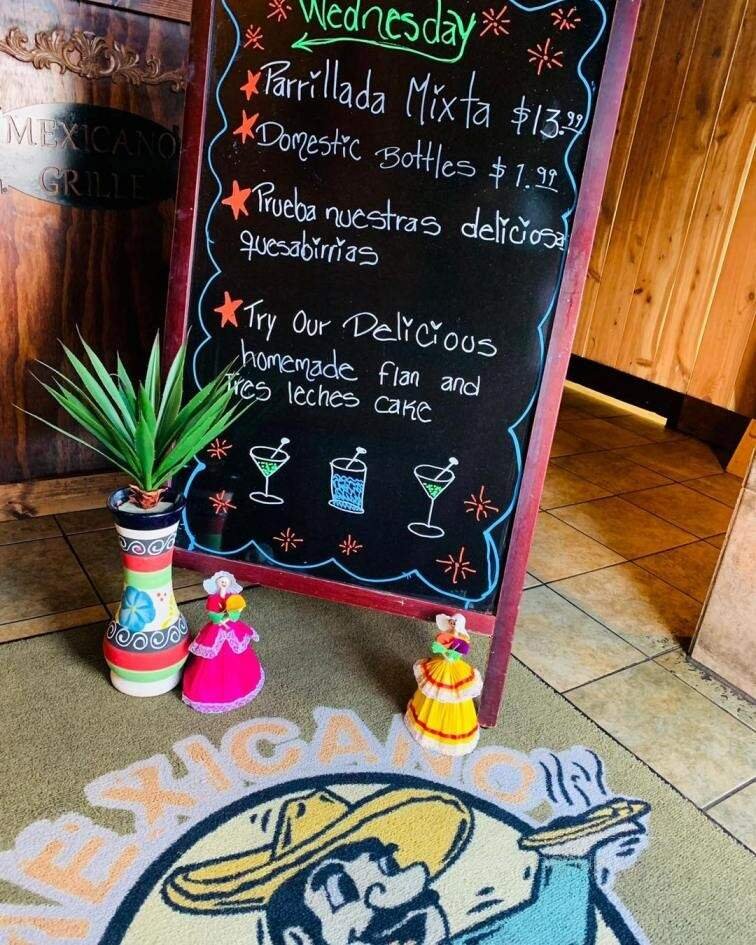 Wednesday
Parrillada Mixta $13.99
Domestic Bottles $1.99
Prueba nuestras deliciosa
quesabirrias
Try Our Delicious
homemade flan and
Tres leches cake
MEXICANO
GRILLE
MEXICANO